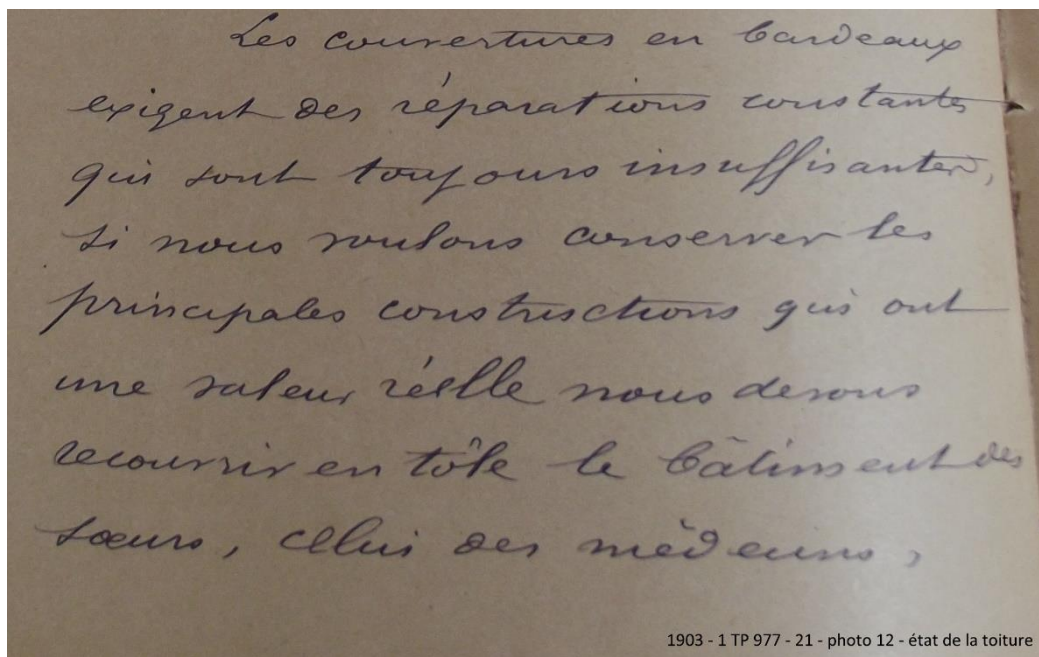 Les couvertures en bardeaux
exigent des réparations constantes
qui sont toujours insuffisantes,
si nous voulons conserver les
principales constructions qui ont
une valeur réelle nous devons
recouvrir en tôle le bâtiment des
sœurs, celui des médecins,
1903 - 1 TP 977 - 21 - photo 12 - état de la toiture